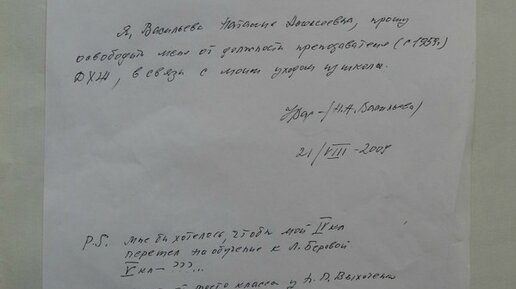 Я, Васильева Наталия Алексеевна, прошу
освободить меня от должности преподавателя (с 1959г.)
ДХШ, в связи с моим уходом из школы.
(Н.А. Васильева)
21/VIII-2007
P.S. Мне бы хотелось, чтобы мой IV кл
перешел на обучение к Л. Беровой.
V кл - ???...
класса у